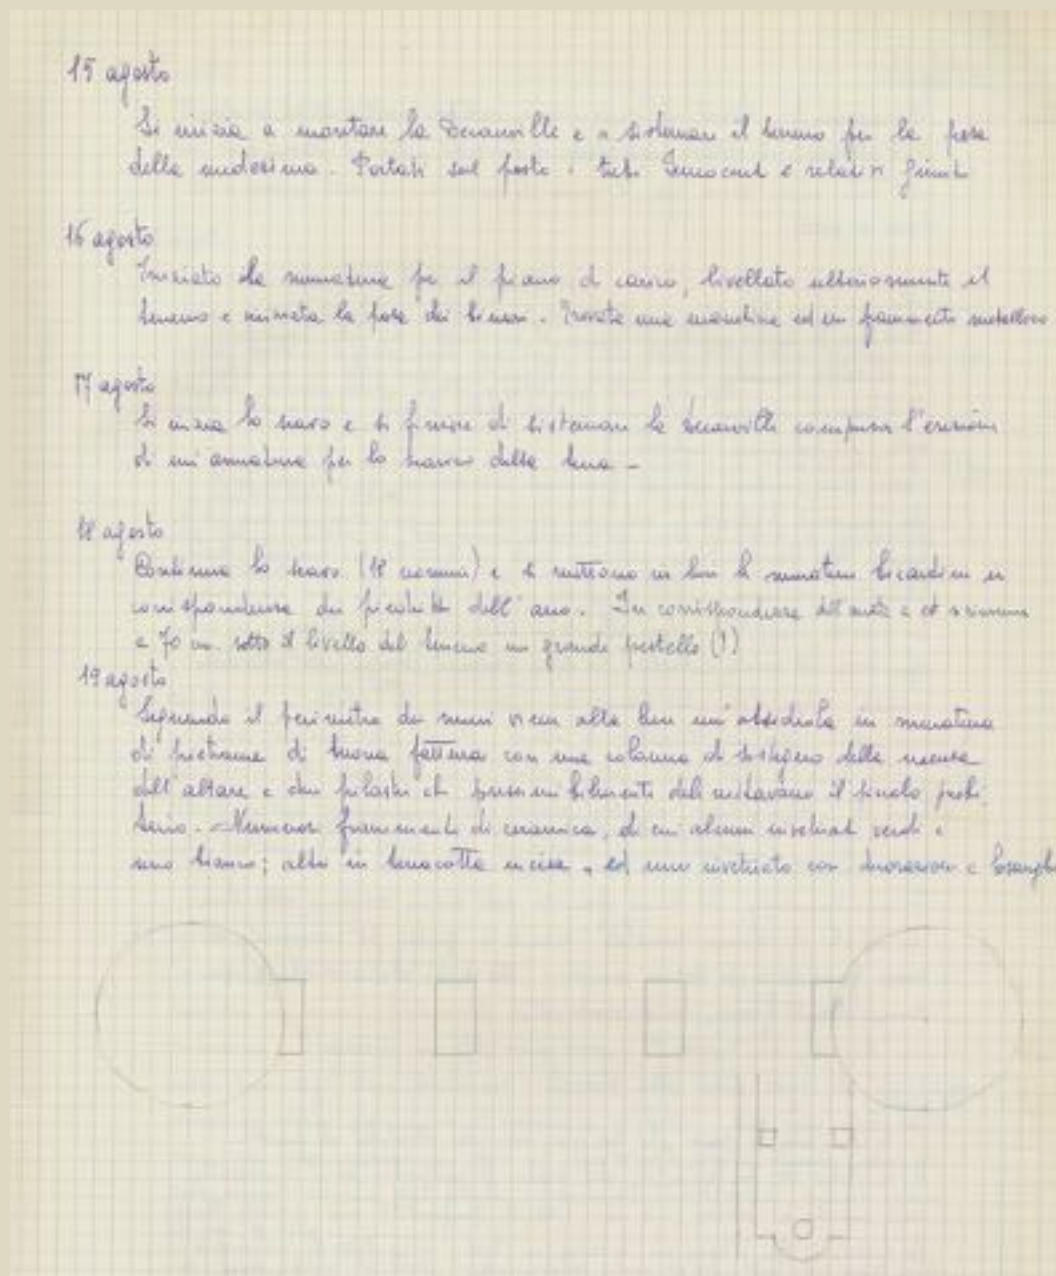 15 agosto
Si inizia a montare la Decauville e a sistemare il terreno per la posa
della medesima. Portati sul posto i tubi Innocenti e relativi giunti
16 agosto
Iniziato la muratura per il piano di carico, livellato ulteriormente il
terreno e iniziata la posa dei binari. Trovate una monetina ed un frammento metallico.
17 agosto
Si inizia lo scavo e si finisce di sistemare la Decauville compresa l'erezione
di un'armatura per lo scarico della terra -
18 agosto
Continua lo scavo (18 uomini) e si mettono in luce le murature in
corrispondenza dei piedritti dell'arco. In corrispondenza
a 70 cm. sotto il livello del terreno un grande pestello (?)
19 agosto
Seguendo il perimetro dei muri viene alla luce un'absidiola in muratura
di pietrame di buona fattura con una colonna di sostegno della mensa
dell'altare e due pilastri che presumibilmente delimitavano il piccolo presbi
terio. - Numerosi frammenti di ceramica, di cui alcuni invetriati verdi e
uno bianco; altri in terracotta incisa, ed uno invetriato con decorazioni a losanghe